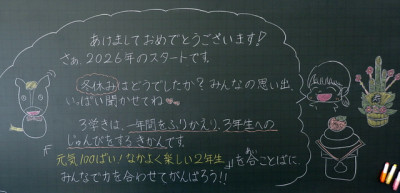 あけましておめでとうございます!
さぁ、2026年のスタートです。
冬休みはどうでしたか?みんなの思い出、
いっぱい聞かせてね
3学きは、一年間をふりかえり、3年生への
じゅんびをするきかんです。
『元気100ばい!なかよく楽しい2年生』を合ことばに、
みんなで力を合わせてがんばろう!!